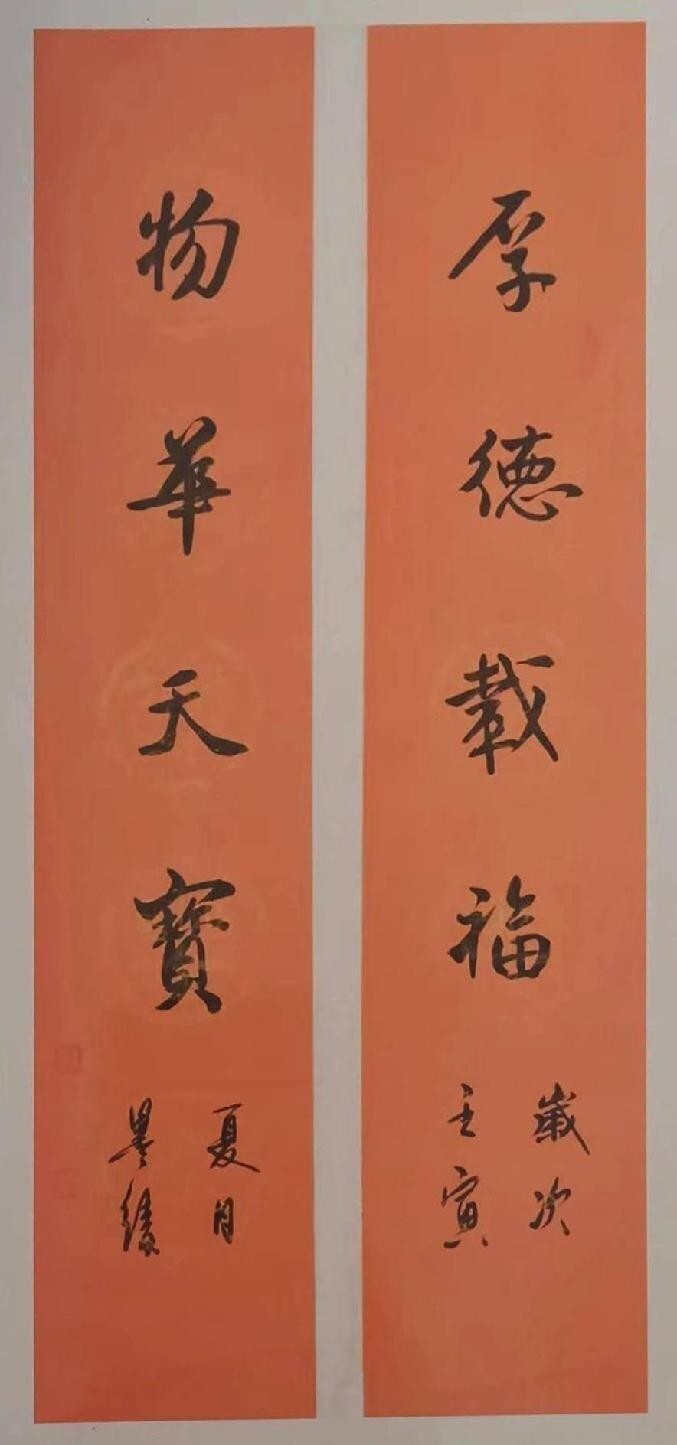 厚德載福
歲次
壬寅
物華天寶
夏月